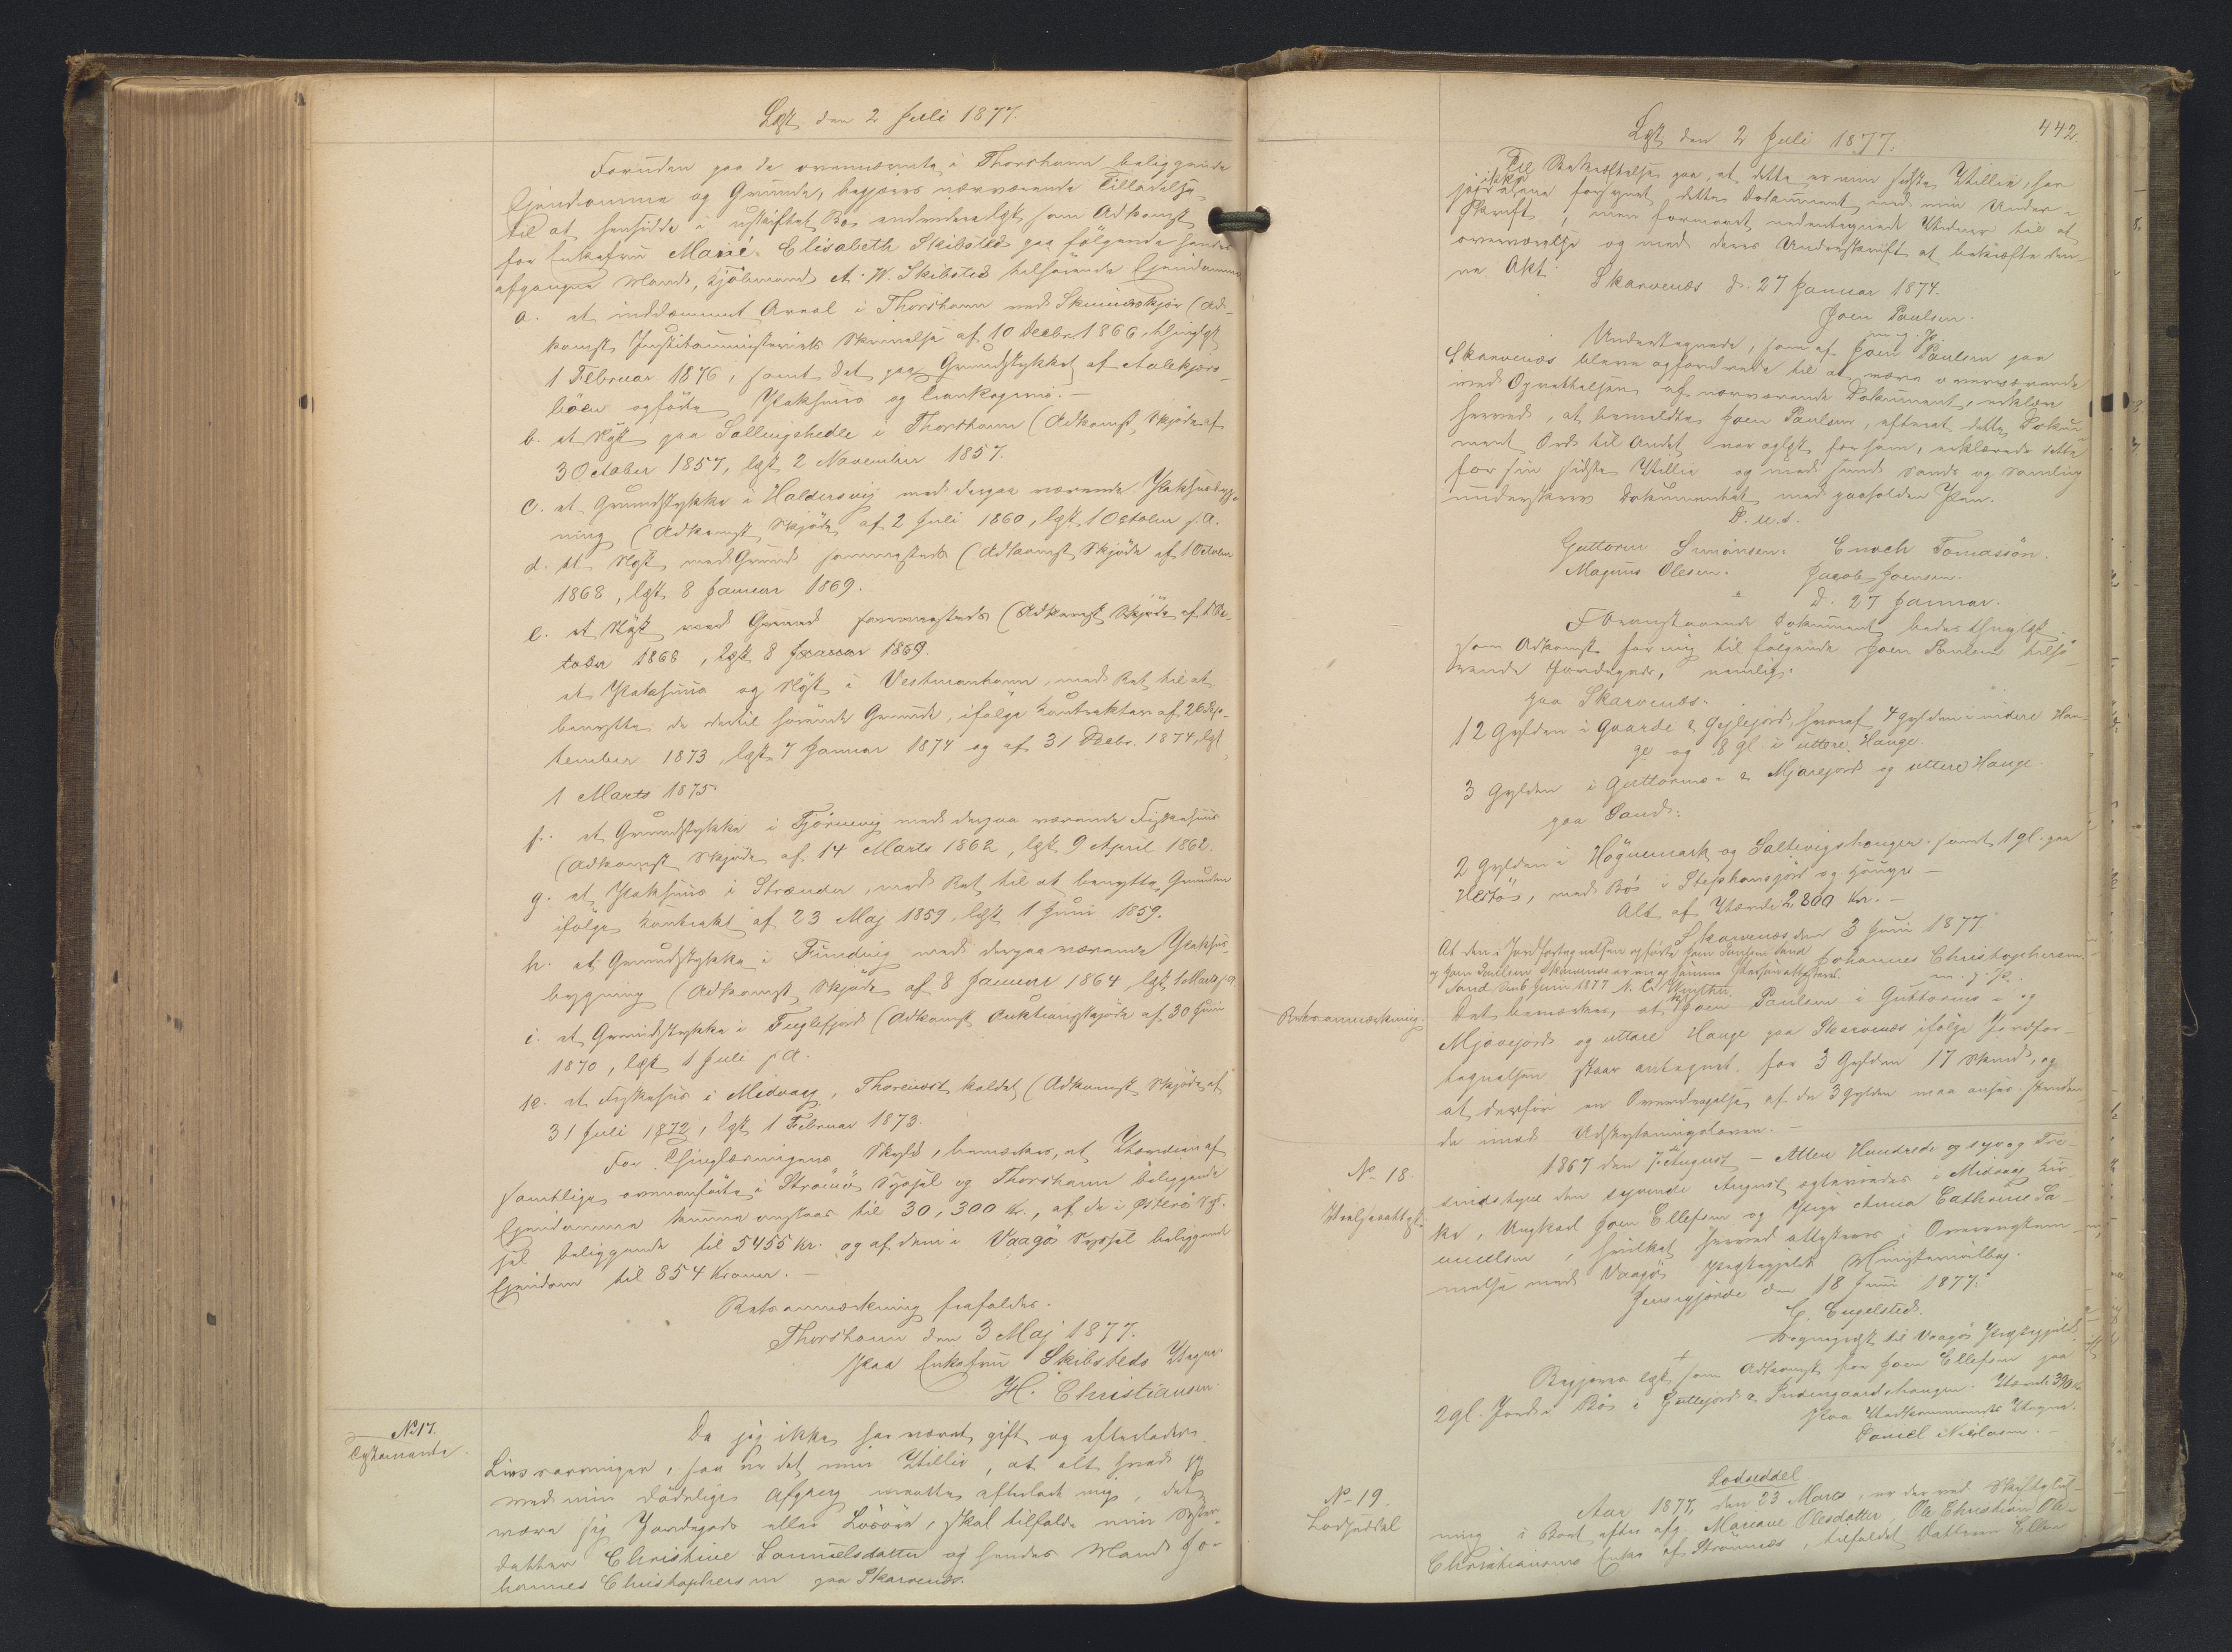 Læst den 2 Juli 1877.
Foruden paa de ovennævnte i Thorshavn beliggende
Ejendomme og Grunde, begjæres nærværende Tilladelse
til at hensidde i uskiftet Bo endvidere læst som Adkomst
for Enkefru Marie Elisabeth Skibsted paa følgende hendes
afgangne Mand, Kjøbmand A. W. Skibsted tilhørende Ejendomme
a. et inddæmmet Areal i Thorshavn ved Skindersskjær (Ad-
komst Justitsministeriets Skrivelse af 10 Decbr. 1866, thinglæst
1 Februar 1876, samt det paa Grundstykket af Aalekjærs-
bøen opførte Pakhuus og
b. et Nøst paa Sallingshedle i Thorshavn (Adkomst Skjøde af
3 October 1857, læst 2 November 1857.
c. et Grundstykke i Haldersvig med derpaa værende Pakhusbyg-
ning (Adkomst Skjøde af 2 Juli 1860, læst 1 October s. A.
d. et Nøst med Grund sammesteds (Adkomst Skjøde af 1 October
1868, læst 8 Januar 1869.
e. et Nøst med Grund sammesteds (Adkomst Skjøde af 1 Oc-
tober 1868, læst 8 Januar 1869.
et Pakhuus og Nøst i Vestmanhavn, med Ret til at
benytte de dertil hørende Grunde, ifølge Kontrakter af 26 Sep-
tember 1873, læst 7 Januar 1874 og af 31 Decbr. 1874, læst
1 Marts 1875.
f. et Grundstykke i Tjørnevig med derpaa værende Fiskehuus
(Adkomst Skjøde af 14 Marts 1862, læst 9 April 1862.
g. et Pakhuus i Strænder, med Ret til at benytte Grunden
ifølge Kontrakt af 23 Maj 1859, læst 1 Juni 1859.
h. et Grundstykke i Fundvig med derpaa værende Pakhus-
bygning (Adkomst Skjøde af 8 Januar 1864, læst 1 Marts s. A
i. et Grundstykke i Fuglefjord (Adkomst Auktionsskjøde af 30 Juni
1870, læst 1 Juli s. A.
k. et Fiskehus i Midvaag, Thorenæst kaldet (Adkomst Skjøde af
31 Juli 1872, læst 1 Februar 1873.
For Thinglæsningens Skyld, bemærkes, at Værdien af
samtlige ovenanførte i Strømø Syssel og Thorshavn beliggende
Ejendomme kunne anslaaes til 30,300 Kr., af de i Østerø Sys-
sel beliggende til 5455 Kr. og af den i Vaagø Syssel beliggende
Ejendom til 854 Kroner. -
Retsanmærkning frafaldes.
Thorshavn den 3 Maj 1877.
Paa Enkefru Skibsteds Vegne
H. Christiansen.
No 17.
Testamente.
Da jeg ikke har været gift og efterlader
Livsarvinger, saa er det min Villie, at alt hvad jeg
ved min dødelige Afgang maatte efterlade mig, det
være sig Jordegods eller Løsøre, skal tilfalde min Søster-
datter Christine Samuelsdatter og hendes Mand Jo-
hannes Christophersen paa Skarvenæs.
442.
Læst den 2 Juli 1877.
Til Bekræftelse paa, at dette er min sidste Villie, har
jeg ikke alene forsynet dette Dokument med min Under-
skrift, men formaaet undertegnede Vidner til at
overværelse og med deres Underskrift at bekræfte den-
ne Akt.
Skarvenæs d. 27 Januar 1874.
Joen Paulsen.
m. f. P.
Undertegnede, som af Joen Paulsen paa
Skarvenæs bleve opfordrede til at være overværende
ved Oprettelsen af nærværende Dokument, erklære
herved, at bemeldte Joen Paulsen, efterat dette Doku-
ment Ord til andet var oplæst for ham, erklærede dette
for sin sidste Villie og med sund Sands og Samling
underskrev Dokumentet med paaholden Pen.
D. u. s.
Guttorm Simonsen. Enoch Tomassøn.
Magnus Olesen. Jacob Joensen.
D. 27 Januar.
Foranstaaende Dokument bedes thinglæst
som Adkomst for mig til følgende Joen Paulsen tilhø-
rende Jordegods, nemlig:
paa Skarvenæs.
12 Gylden i Gaarde & Gejlejord, hvoraf 4 Gylden i indere Hau-
ge og 8 gl. i uttere Hauge.
3 Gylden i Guttorms- & Mjavejord og uttere Hauge.
paa Sand:
2 Gylden i Høgnemark og Saltvigshaugen. samt 1 gl. paa
Hestøs, med Bø i Stephansjord og Haugi -
Alt af Værdi 2,800 Kr. -
Skarvenæs den 3 Juni 1877.
Johannes Christophersen.
m. f. P.
At den i Jordfortegnelsen opførte Joen Paulsen Sand
og Joen Poulsen Skarvenæs er en og samme Person attesteres.
Sand den 6 Juni 1877 N. C. Winther.
Retsanmærkning.
Det bemærkes, at Joen Paulsen i Guttorms- og
Mjavejord og uttere Hauge paa Skarvenæs ifølge Jordfor-
tegnelsen staar antegnet for 3 Gylden 17 Skind, og
at derfor en Overdragelse af de 3 Gylden maa anses striden-
de imod Udstykningsloven. -
No 18.
Vielsesattest
1867 den 7. August - Atten Hundrede og syv og Tre-
sindstyve den syvende August ægteviedes i Midvaags Kir-
ke, Ungkarl Joen Ellefsen og Pige Anna Cathrine Sa-
muelsen, hvilket herved attesteres i Overensstem-
melse med Vaagø Præstegjelds Ministerialbog.
Jensagjærde den 18 Juni 1877.
C. Engelsted.
Sognepræst til Vaagø Præstegjeld.
Begjæres læst som Adkomst for Joen Ellefsen paa
2 gl. Jord i Bø i Guttejord & Inderigaardshaugen. Værdi 390 Kr.
Paa Vedkommendes Vegne.
Daniel Niclasen.
No 19.
Lodseddel
Lodseddel
Aar 1877, den 23 Marts, er der ved Skifteslut-
ning i Boet efter afg. Mariane Olesdatter, Ole Christian Ole-
Christiansens Enke af Strømnæs, tilfaldet Datteren Ellen